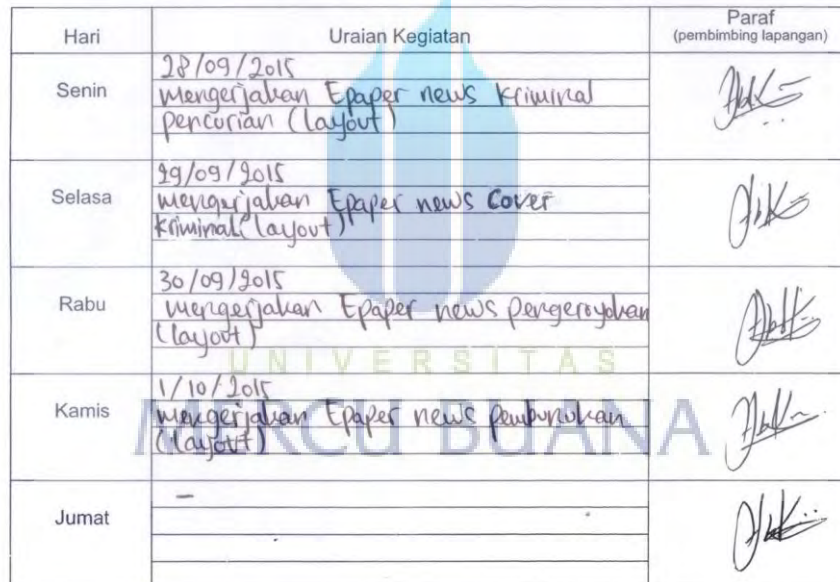 Hari Uraian Kegiatan Paraf
(pembimbing lapangan)
Senin
28/09/2015
mengerjakan Epaper news kriminal
pencurian (layout)
Selasa
29/09/2015
mengerjakan Epaper news Cover
kriminal (layout)
Rabu
30/09/2015
mengerjakan Epaper news pengeroyokan
(layout)
UNIVERSITAS
Kamis
1/10/2015
mengerjakan Epaper news pembunuhan
(layout)
MERCU BUANA
Jumat
-